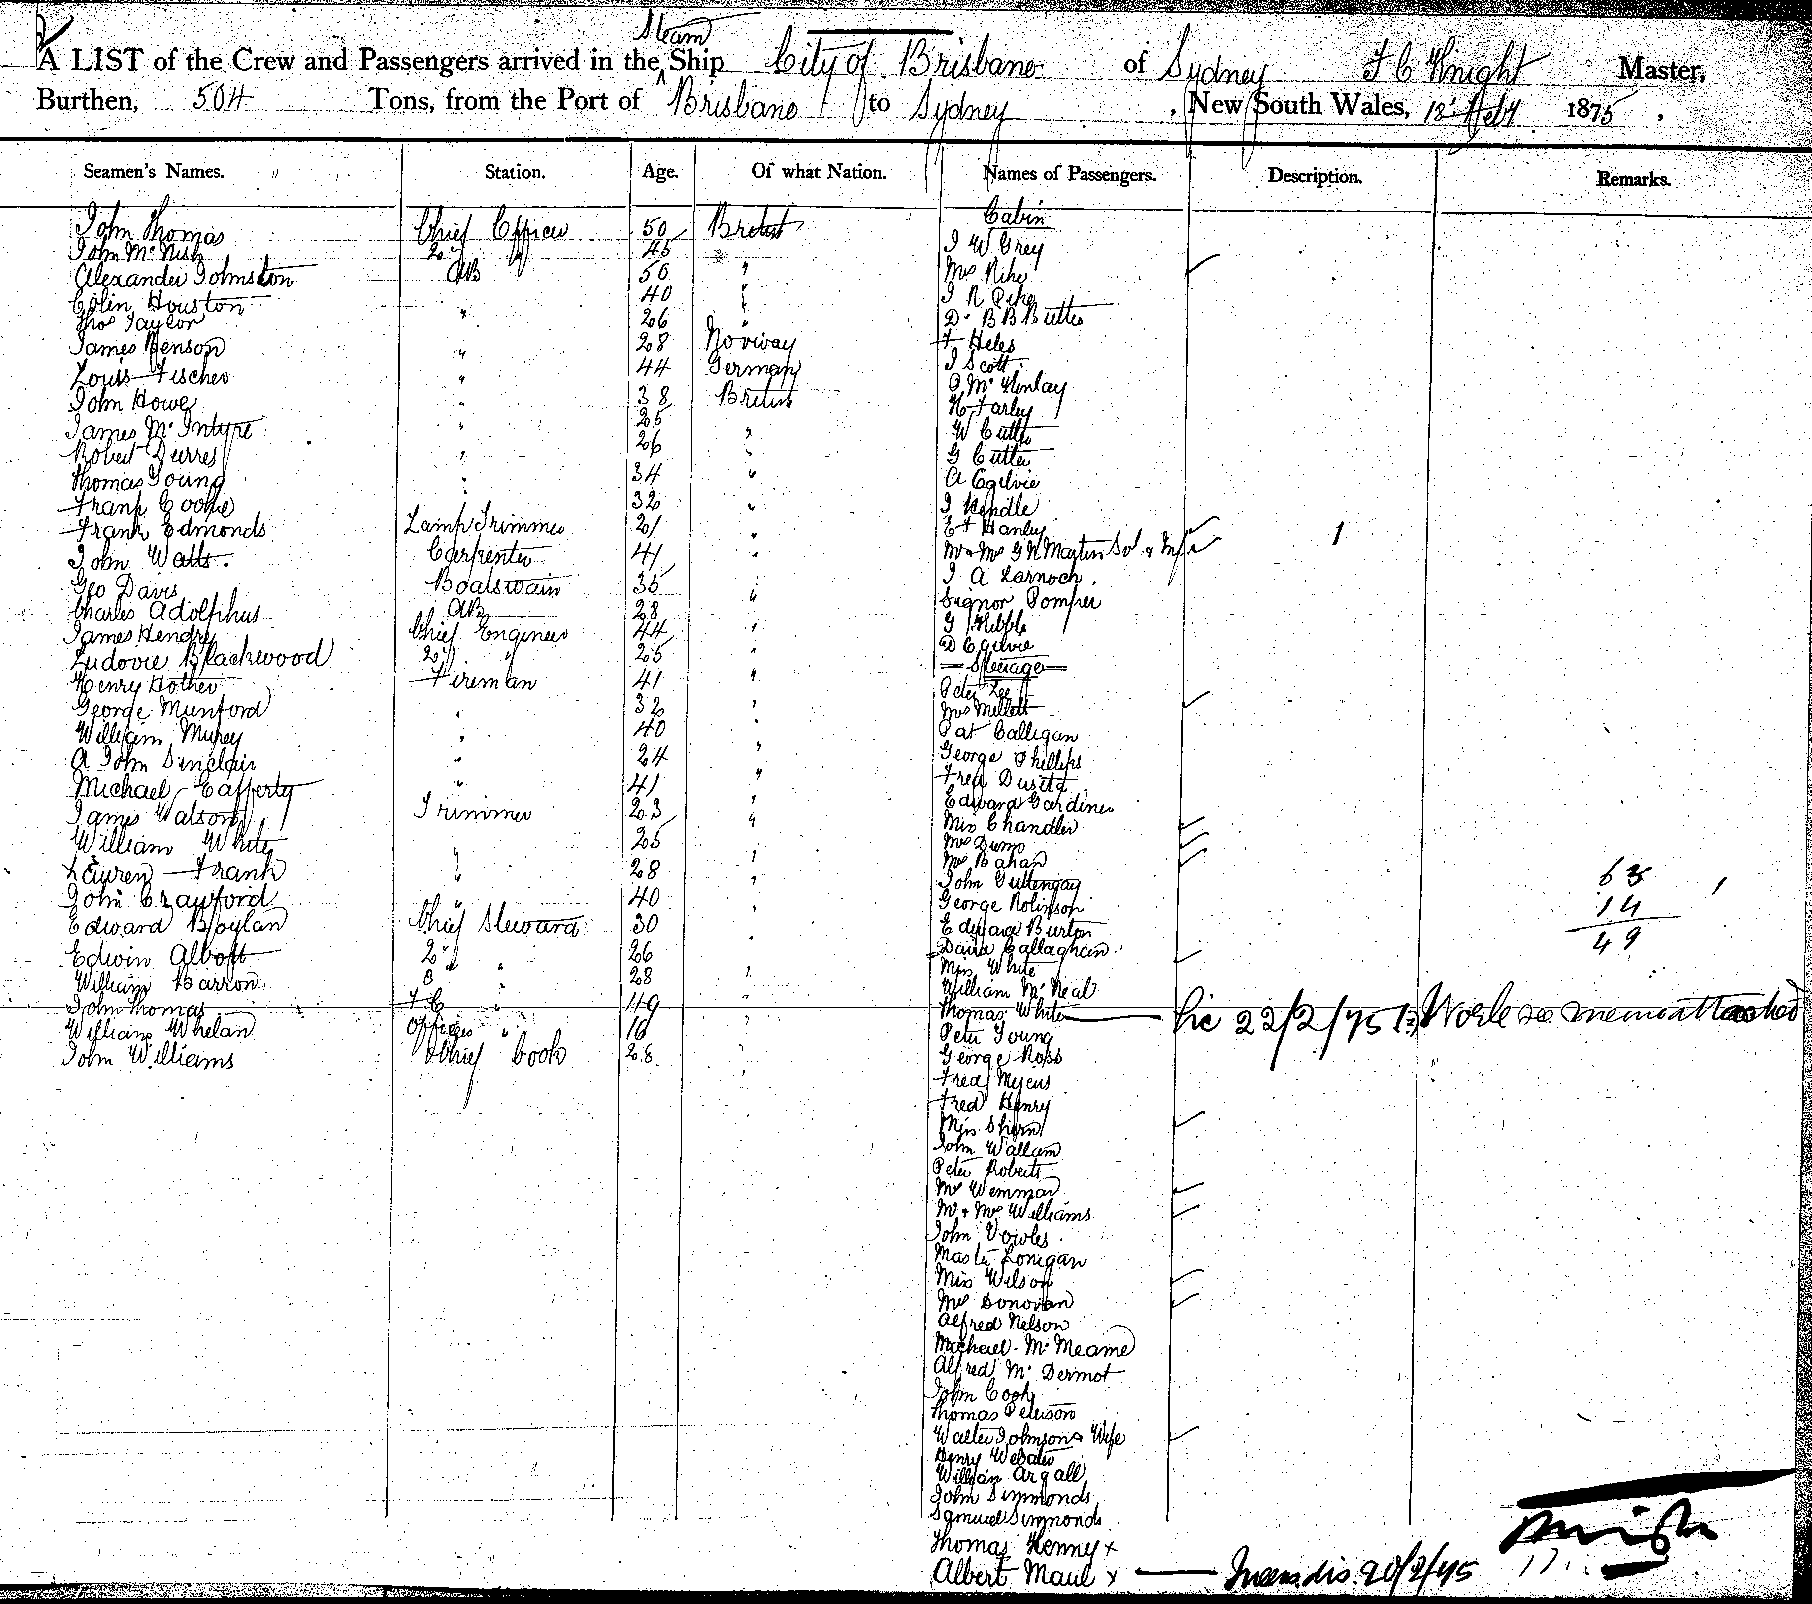 Steam
A LIST of the Crew and Passengers arrived in the Ship City of Brisbane of Sydney F C Knight Master,
Burthen, 504 Tons, from the Port of Brisbane to Sydney, New South Wales, 18 Feby 1875,
Seamen's Names. Station. Age. Of what Nation. Names of Passengers. Description. Remarks.
Cabin
John Thomas Chief Officer 50 British J W Grey
John Mc Nish 2nd " 45 Mrs Pike
Alexander Johnston AB 50 " J R Pike
Colin Houston 40 " Dr B B Buttes
Thos Taylor " 26 " F Heles
James Benson " 28 Norway J Scott
Louis Fischer " 44 German Mc Kinlay
John Howe " 38 British H Farley
James Mc Intyre " 25 W Cutler
Robert Durres " 26 " G Cutler
Thomas Young " 34 " A Ogilvie
Frank Cooke 32 " J Kendle
Frank Edmonds Lamp Trimmer 21 " E F Hanley
John Watts. Carpenter 41 " Mr & Mrs G H Martin 1
Geo Davis Boatswain 35 " J A Larnoch.
Charles Adolphus AB 28 " Signor Pompei
James Hendry Chief Engineer 44 " G Hibble
Ludovie Blackwood 2nd " 25 " D Ogilvie
Steerage
Henry Hother Fireman 41 " Peter Lee
George Munford " 32 " Mrs Mellett
William Murey " 40 " Pat Calligan
A John Sinclair " 24 " George Phillips
Michael Cafferty " 41 " Fred
James Watson Trimmer 23 " Edward Gardiner
William White 25 " Miss Chandler
Lauren Frank " 28 " Mrs Dump
John Crawford " 40 " Mrs Bahan
Edward Boylan Chief Steward 30 John
Edwin Abbott 2nd " 26 George Robinson
William Barron 3rd " 28 " Edward Burton
John Thomas F C " 49 " David Callaghan
William Whelan Officers " 16 " Miss White
John Williams Chief Cook 28 " William Mc Neal
63
14
49
Thomas White 22/2/75 see memo attached
Peter Young
George Ross
Fred Myers
Fred Henry
Miss Shirm
John Wallam
Peter Roberts
Mrs Wemmar
Mr & Mrs Williams
John Vowles.
Master Lonigan
Miss Wilson
Mrs Donovan
Alfred Nelson
Michael Mc Meame
Alfred Mc Dermot
John Cook
Thomas Peterson
Walter Johnson & Wife
Henry Webster
William Argall
John Simmonds
Samuel Simmonds
Thomas Kenny x
Albert Maul x 20/2/75